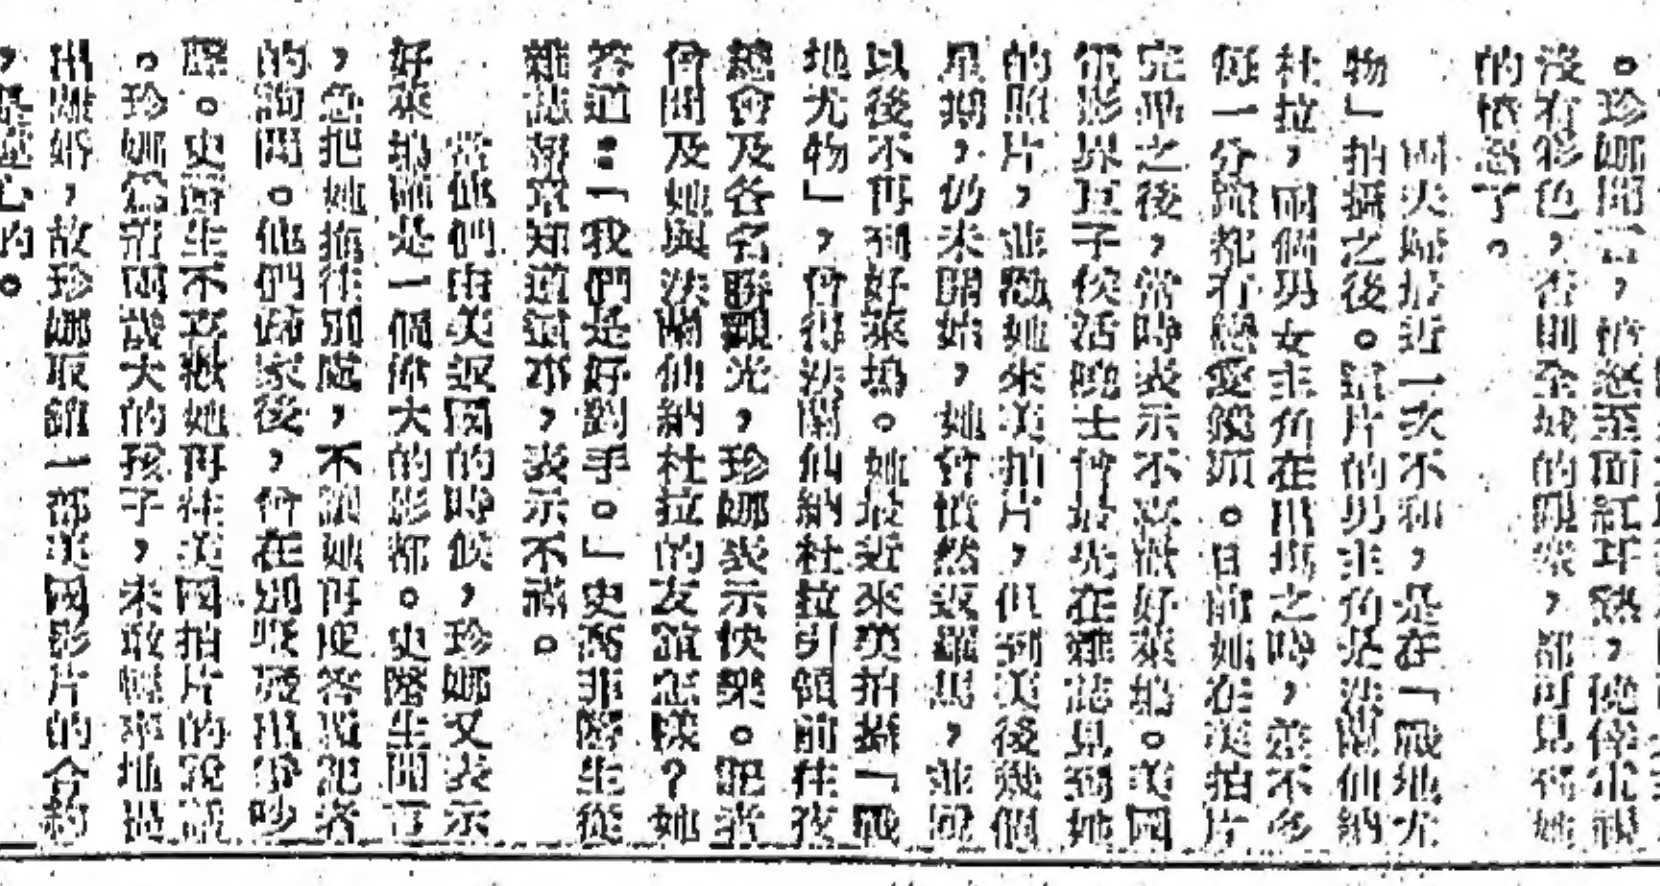 。珍娜聞言,憤怒至面紅耳熱,僥倖電視
沒有彩色,否則全城的觀衆,都可見到她
的憤怒了。
兩夫婦最近一次不和,是在「戰地尤
物」拍攝之後。該片的男主角是法蘭仙納
杜拉,兩個男女主角在出塲之時,差不多
每一分鐘都有戀愛鏡頭。日前她在美拍片
完畢之後,常時表示不喜歡好萊塢。美國
電影界巨子侯活曉士曾最先在雜誌見到她
的照片,並勸她來美拍片,但到美後幾個
星期,仍未開始,她曾憤然返羅馬,並
以後不再到好萊塢。她最近來美拍攝「戰
地尤物」,曾得法蘭仙納杜拉引領前往夜
總會及各名勝觀光,珍娜表示快樂。記者
曾問及她與法蘭仙納杜拉的友誼怎樣?她
答道:「我們是好對手。」史高非醫生從
雜誌報章知道這事,表示不滿。
當他們由美返國的時候,珍娜又表示
好萊塢確是一個偉大的影都。史醫生聞言
,急把她拖往別處,不讓她再度答覆記者
的詢問。他們歸家後,曾在別墅發出爭吵
。史醫生不喜歡她再往美國拍片的
。珍娜爲着兩歲大的孩子,未敢輕率地提
出離婚,故珍娜取銷一部美國影片的合約
,是
心的。